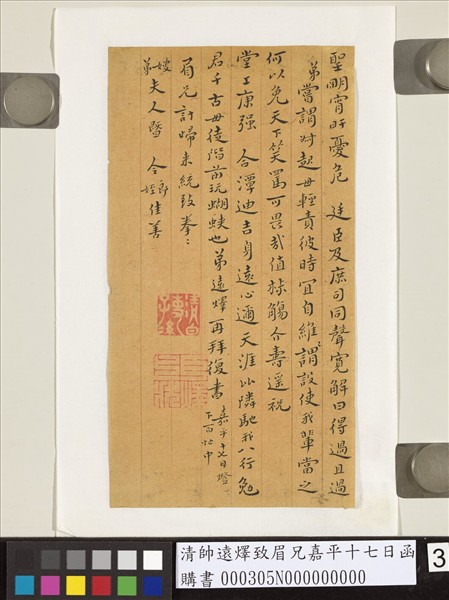 聖明宵旰憂危 廷臣及庶司同聲寬解曰得過且過
弟嘗謂時起毋輕責彼時宜自維謂設使我輩當之
何以免天下笑罵可畏哉值旅觴介壽遥祝
堂上康强 合潭迪吉身遠心邇天涯比隣馳我八行勉
君千古毋徒階前玩蝴蛺也弟遠燡再拜復書 嘉平十七日燈
下百忙中
眉兄計歸来統致拳々
嫂夫人暨 令郎姪佳善
弟
清白傳子孫
清帥遠燡致眉兄嘉平十七日函
購書 000305N000000000
3